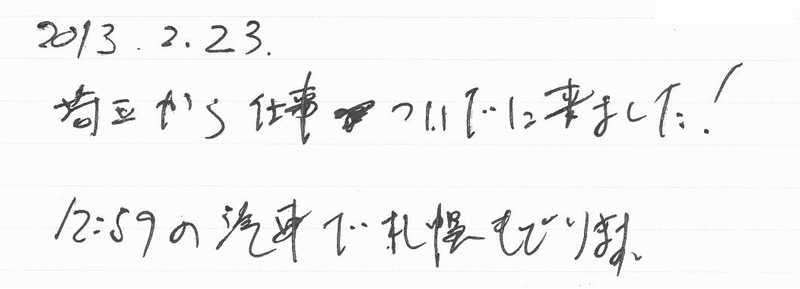 2013.2.23.
埼玉から仕事ついでに来ました!
12:59の汽車で札幌もどります。